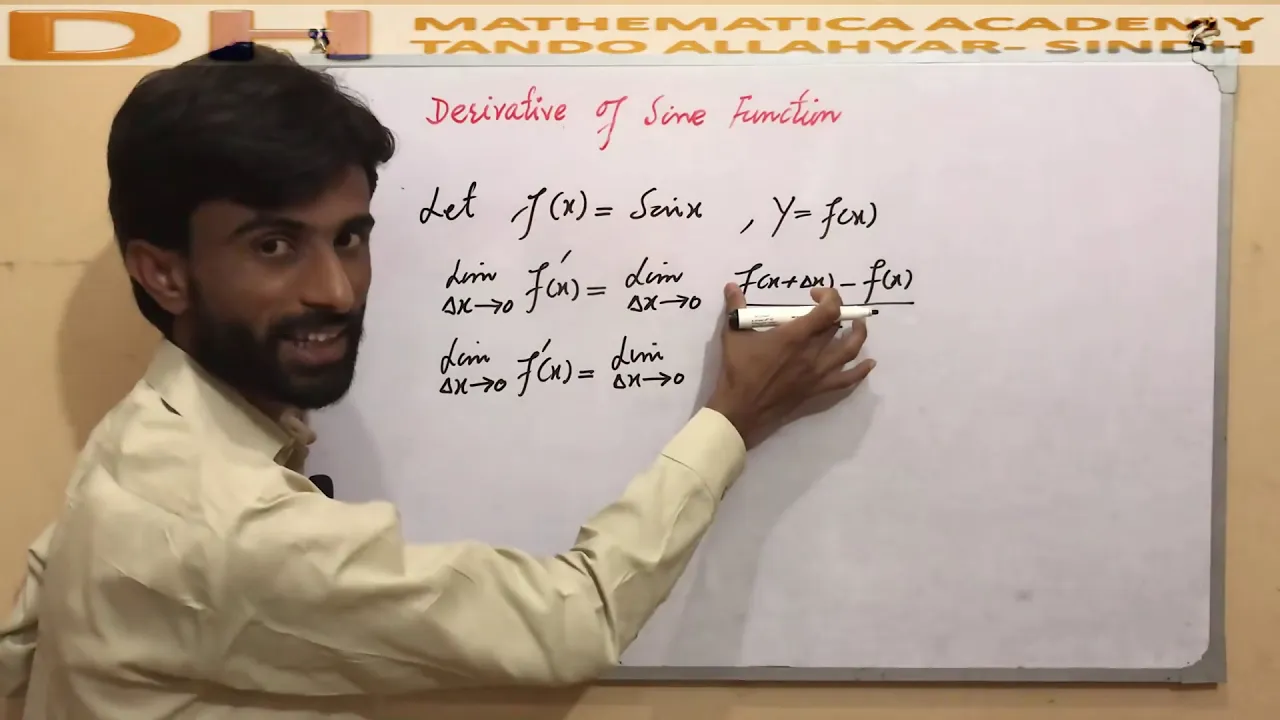 DH MATHEMATICA ACADEMY
TANDO ALLAHYAR- SINDH
Derivative of Sine Function
Let f(x) = Sinx , Y = f(x)
Lim Δx→0 f'(x) = Lim Δx→0 f(x+Δx) - f(x)
Lim Δx→0 f'(x) = Lim Δx→0